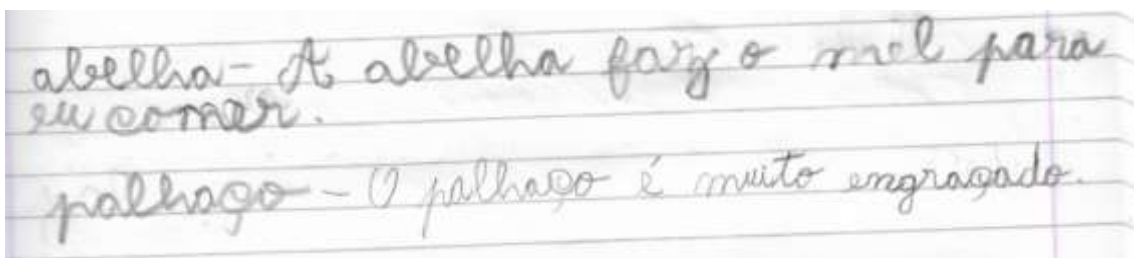 abelha - A abelha faz o mel para
eu comer.
palhaço - O palhaço é muito engraçado.